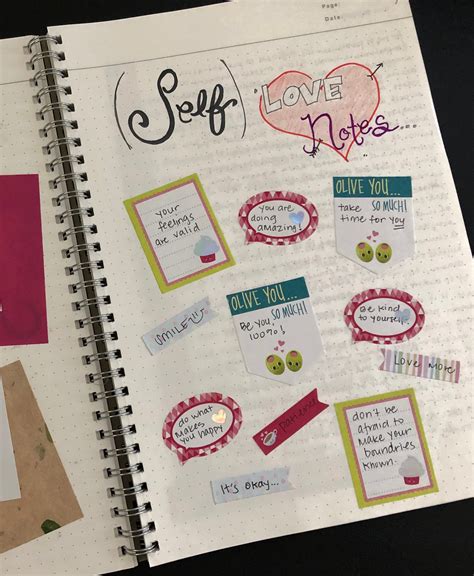 Page:
Date:
(Self) LOVE
Notes...
your
feelings
are valid
you are
doing
amazing!
OLIVE YOU...
SO MUCH!
take
time for you
SMILE
OLIVE YOU...
SO MUCH!
Be you,
100%!
Be kind
to yourself
Love More
do what
makes
you happy
don't be
afraid to
make your
boundries
known.
It's okay...